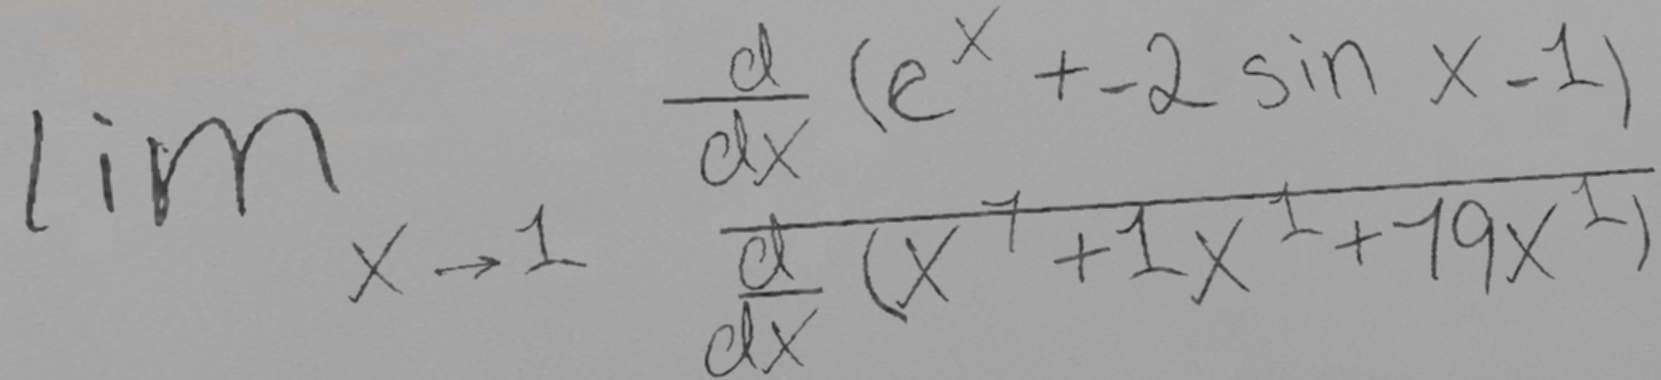 \lim_{x \to 1} \frac{\frac{d}{dx}(e^x + -2 \sin x - 1)}{\frac{d}{dx}(x^7 + 1x^1 + 79x^1)}